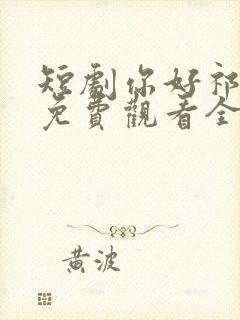 短劇你好祁
免費觀看全
黃波